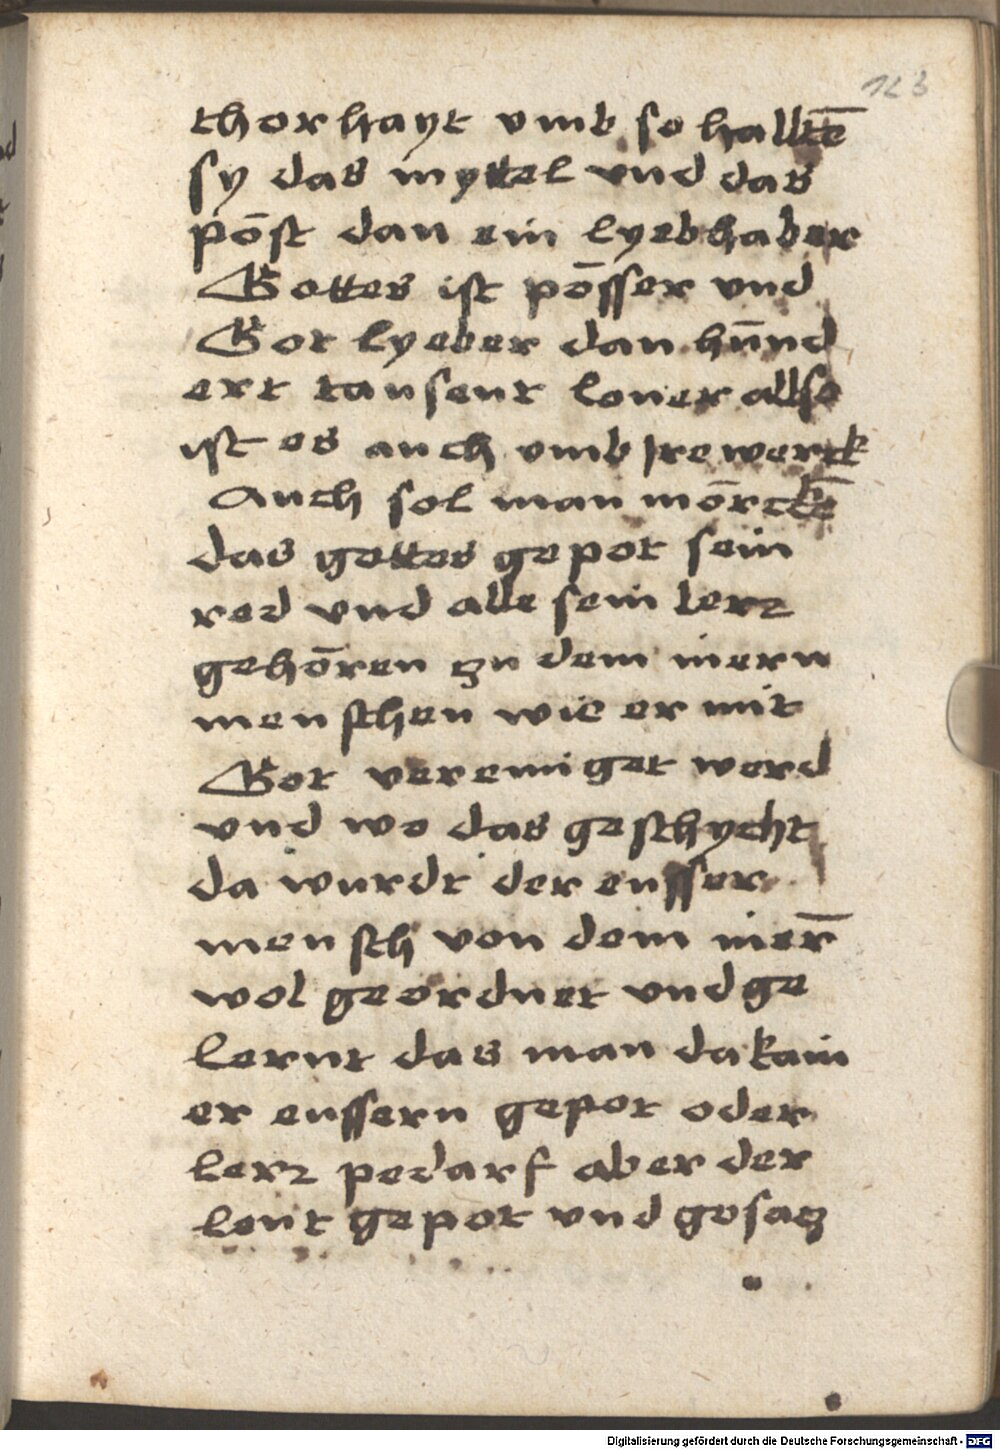 123
thorhayt vmb so halltē
sy das myttel vnd das
pōst dan ein lyebhaber
Gottes ist pōsser vnd
Got lyeber dan hūnd
ert tausent loner allso
ist es auch vmb Ire werck
Auch sol man mōrckē
das gottes gepot sein
red vnd alle sein lerr
gehōren zu dem inern
menschen wie er mit
Got vereiniget werd
vnd wo das geschycht
da wurdt der eusser
mensch von dem iner̄
wol geordnet vnd ge
lernt das man da kain
er eussern gepot oder
lerr pedarf aber der
leut gepot vnd gesatz
Digitalisierung gefördert durch die Deutsche Forschungsgemeinschaft - DFG